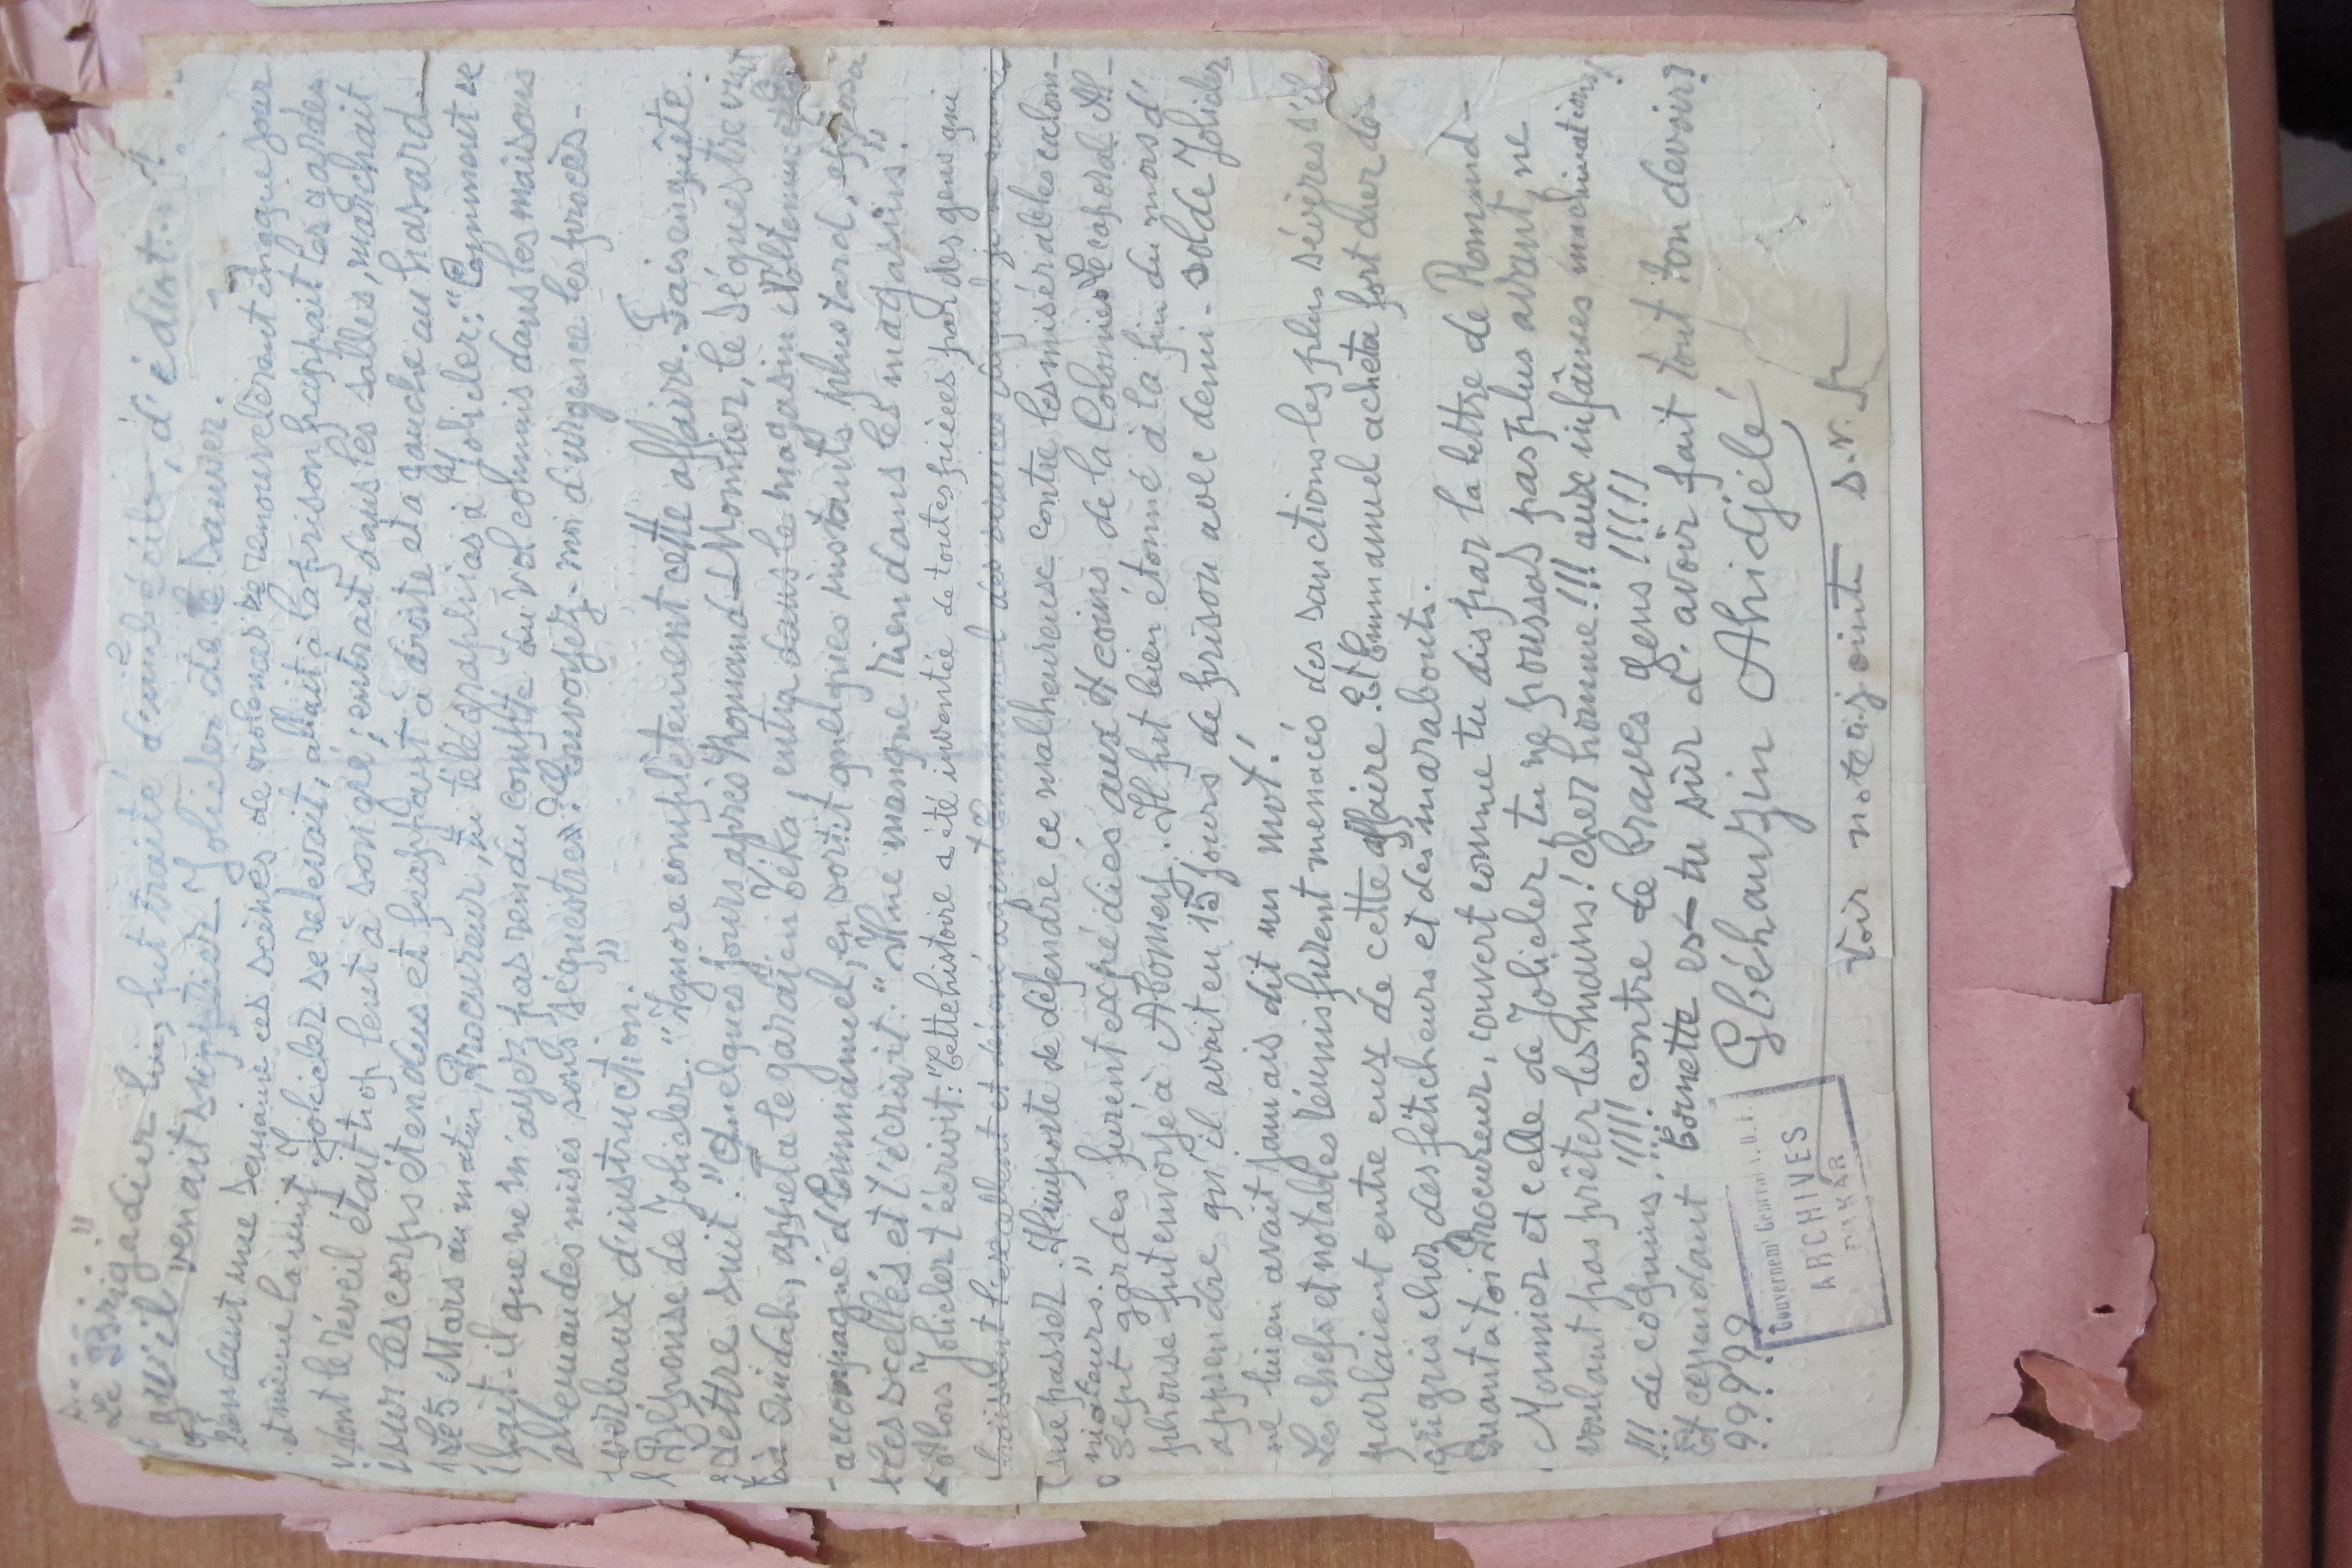 Le Brigadier lui, fut traité d'imbécile, d'idiot...!.
qu'il venait supplier Jolicler de le sauver.
Pendant une semaine ces scènes de violences se renouvelèrent chaque jour
et même la nuit. Jolicler se relevait, allait à la prison, frappait les gardes
dont le réveil était trop lent à son gré; entrait dans les salles, marchait
sur les corps étendus et frappant à droite et à gauche au hasard.
Le 5 Mars au matin, Procureur, tu télégraphias à Jolicler: "Comment se
fait-il que ne m'ayez pas rendu compte du vol commis dans les maisons
allemandes mises sous séquestres? Envoyez-moi d'urgence les procès-
verbaux d'instruction."
Réponse de Jolicler. "Ignore complètement cette affaire. Fais enquête.
Lettre suit." Quelques jours après Romand-Monnier, le séquestre vint
à Ouidah, appela le garde Zika, entra dans le magasin
accompagné d'Emmanuel, en sortit quelques instants plus tard, apposa
les scellés et t'écrivit: "Il ne manque rien dans les magasins."
Alors Jolicler t'écrivit: "Cette histoire a été inventée de toutes pièces par des gens qui
me passer. Il importe de défendre ce malheureux contre les misérables calom-
niateurs."
Sept gardes furent expédiés aux 4 coins de la Colonie. Le caporal Al-
phonse fut envoyé à Abomey. Il fut bien étonné à la fin du mois d'
apprendre qu'il avait eu 15 jours de prison avec demi-solde Jolicler
ne lui en avait jamais dit un mot!
Les chefs et notables réunis furent menacés des sanctions les plus sévères s'ils
parlaient entre eux de cette affaire. Et Emmanuel acheta fort cher des
grigris chez des féticheurs et des marabouts.
Quant à toi Procureur, couvert comme tu dis par la lettre de Romand-
Monnier et celle de Jolicler, tu ne poussas pas plus avant, ne
voulant pas prêter les mains! cher homme!!! aux infâmes machinations
!!! de coquins!!!!! contre de braves gens!!!!!
Et cependant Bornette es-tu sûr d'avoir fait tout ton devoir?
??????
Gbéhanzin Ahidjélé
Voir note ajointe s.v.p.
Gouvernem<sup>t</sup> Général A.O.F.
ARCHIVES
DAKAR